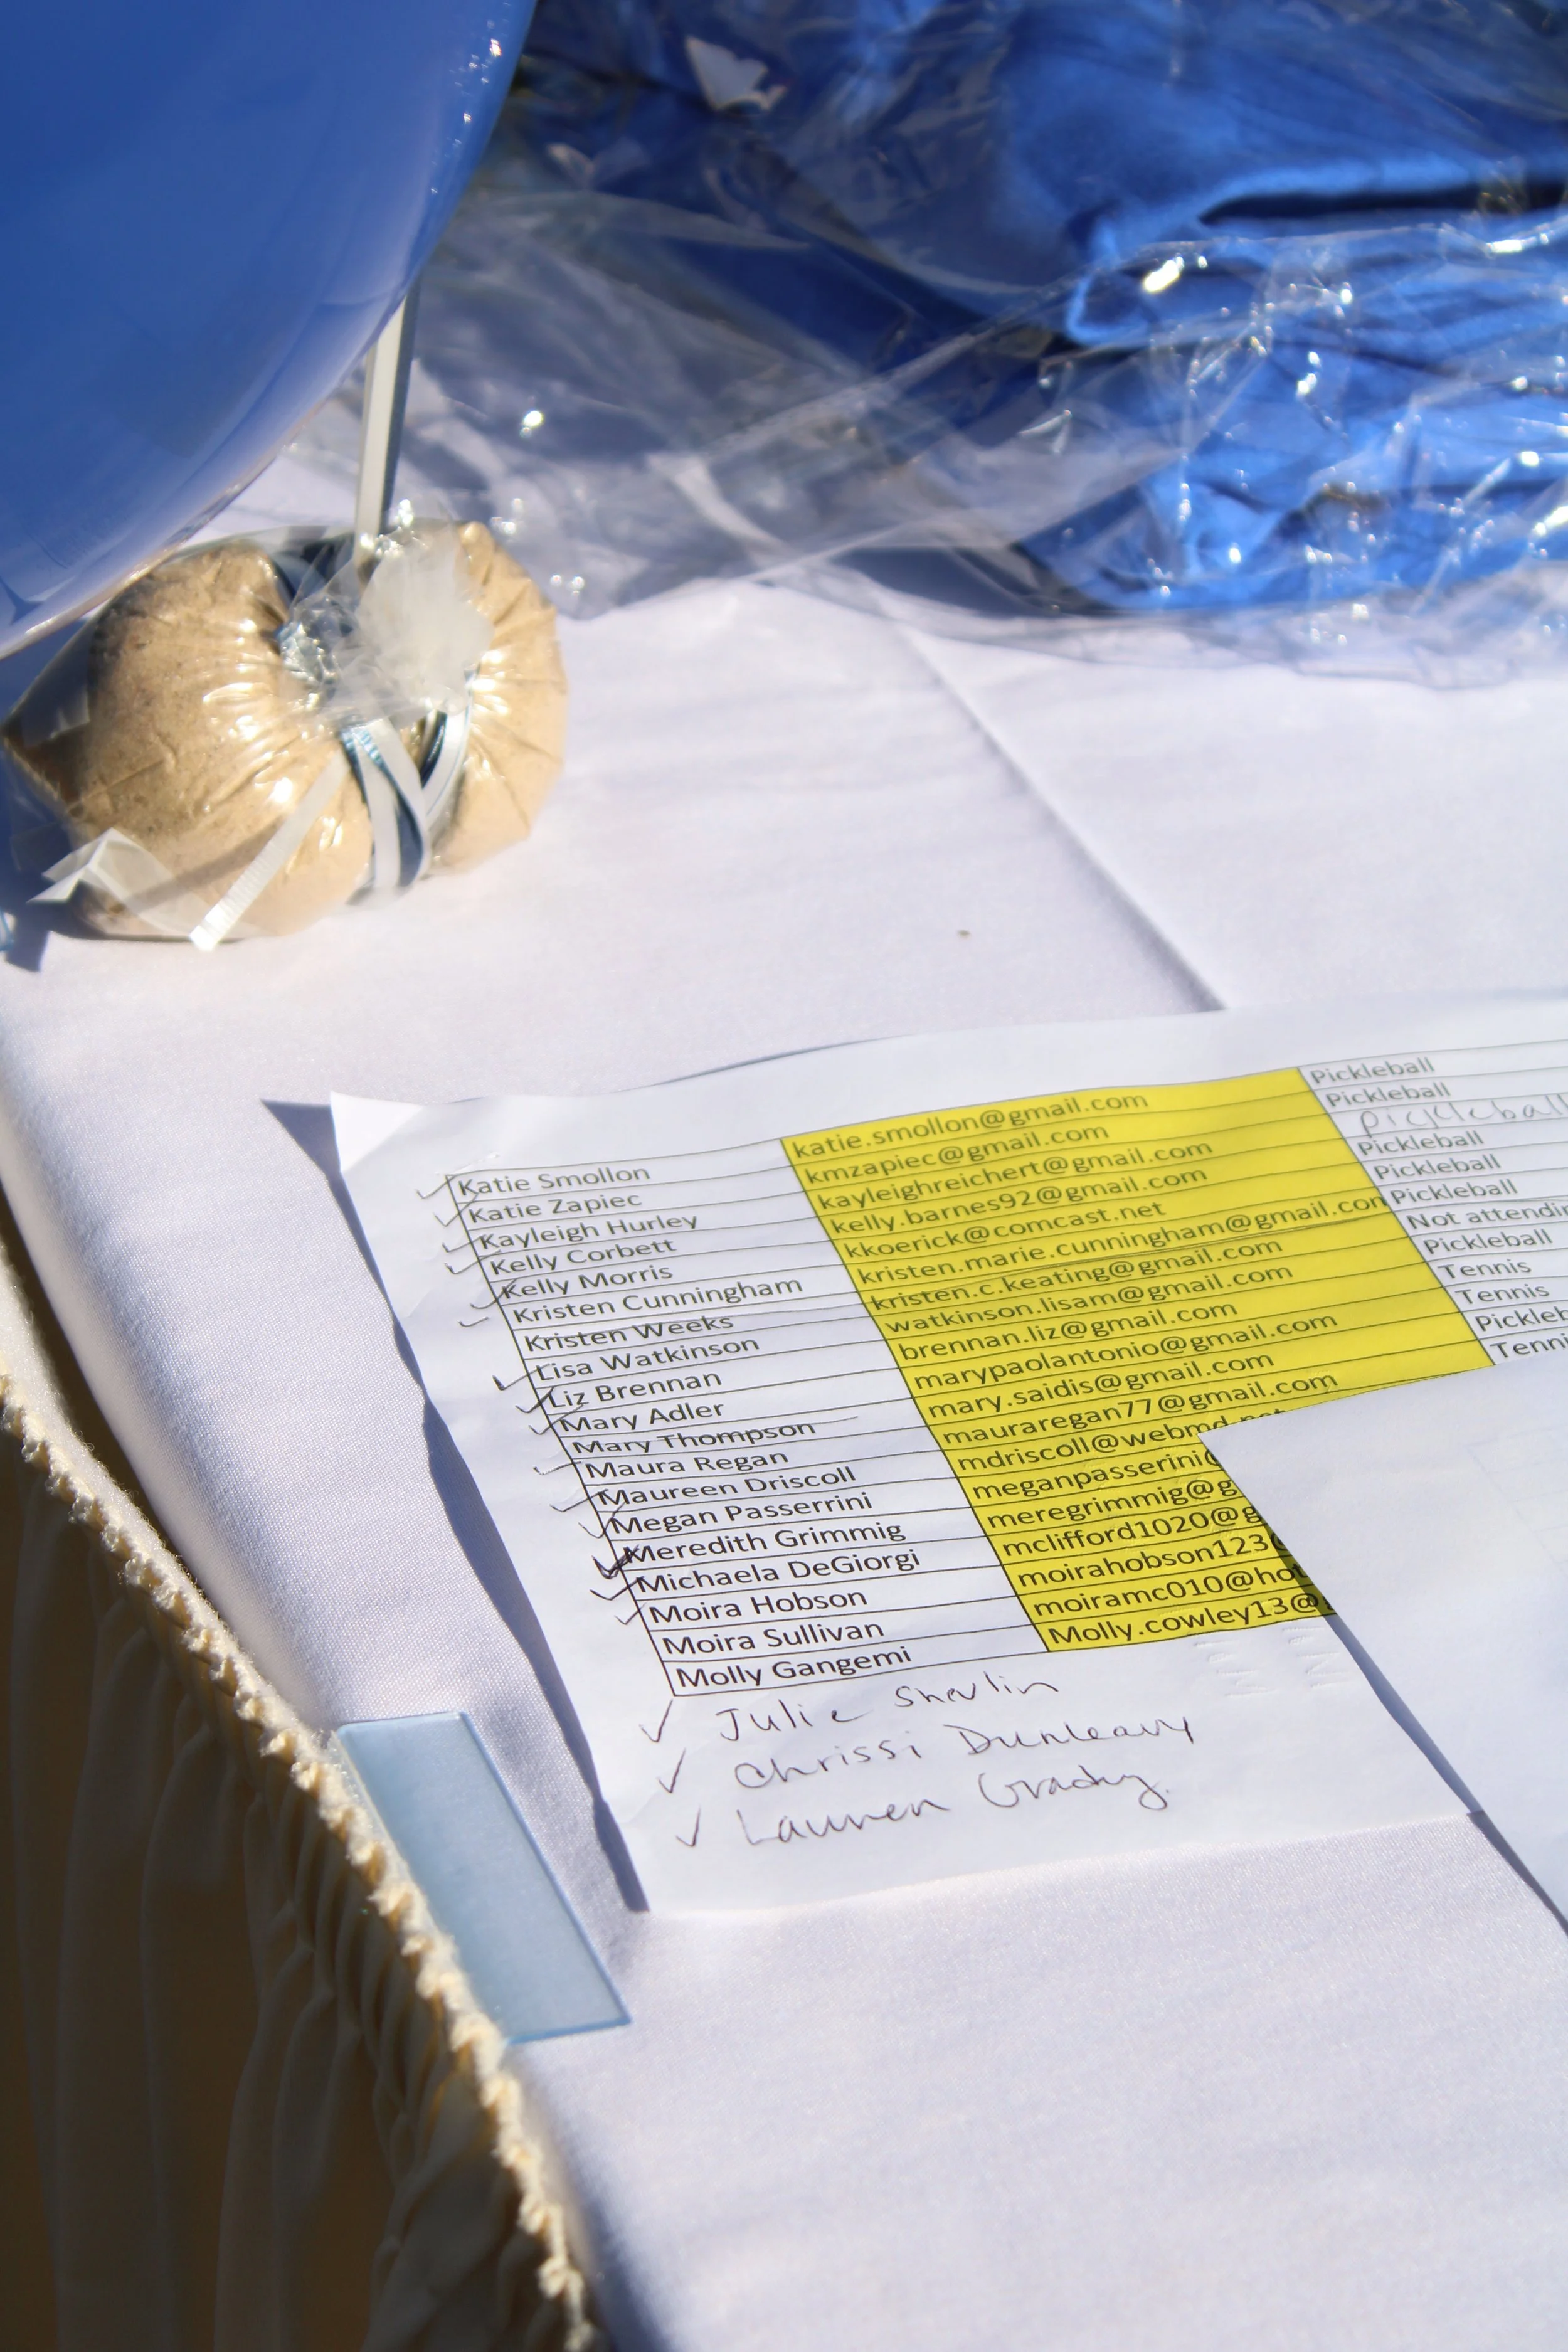 Katie Smollon katie.smollon@gmail.com Pickleball
Katie Zapiec kmzapiec@gmail.com Pickleball
Kayleigh Hurley kayleighreichert@gmail.com pickleball
Kelly Corbett kelly.barnes92@gmail.com Pickleball
Kelly Morris kkoerick@comcast.net Pickleball
Kristen Cunningham kristen.marie.cunningham@gmail.com Pickleball
Kristen Weeks kristen.c.keating@gmail.com Not attendin
Lisa Watkinson watkinson.lisam@gmail.com Pickleball
Liz Brennan brennan.liz@gmail.com Tennis
Mary Adler marypaolantonio@gmail.com Tennis
Mary Thompson mary.saidis@gmail.com Pickleb
Maura Regan mauraregan77@gmail.com Tenni
Maureen Driscoll mdriscoll@webmd.net
Megan Passerrini meganpasserini@
Meredith Grimmig meregrimmig@g
Michaela DeGiorgi mclifford1020@g
Moira Hobson moirahobson123@
Moira Sullivan moiramc010@hot
Molly Gangemi Molly.cowley13@g
Julie Shevlin
Chrissi Dunleavy
Lauren Grady